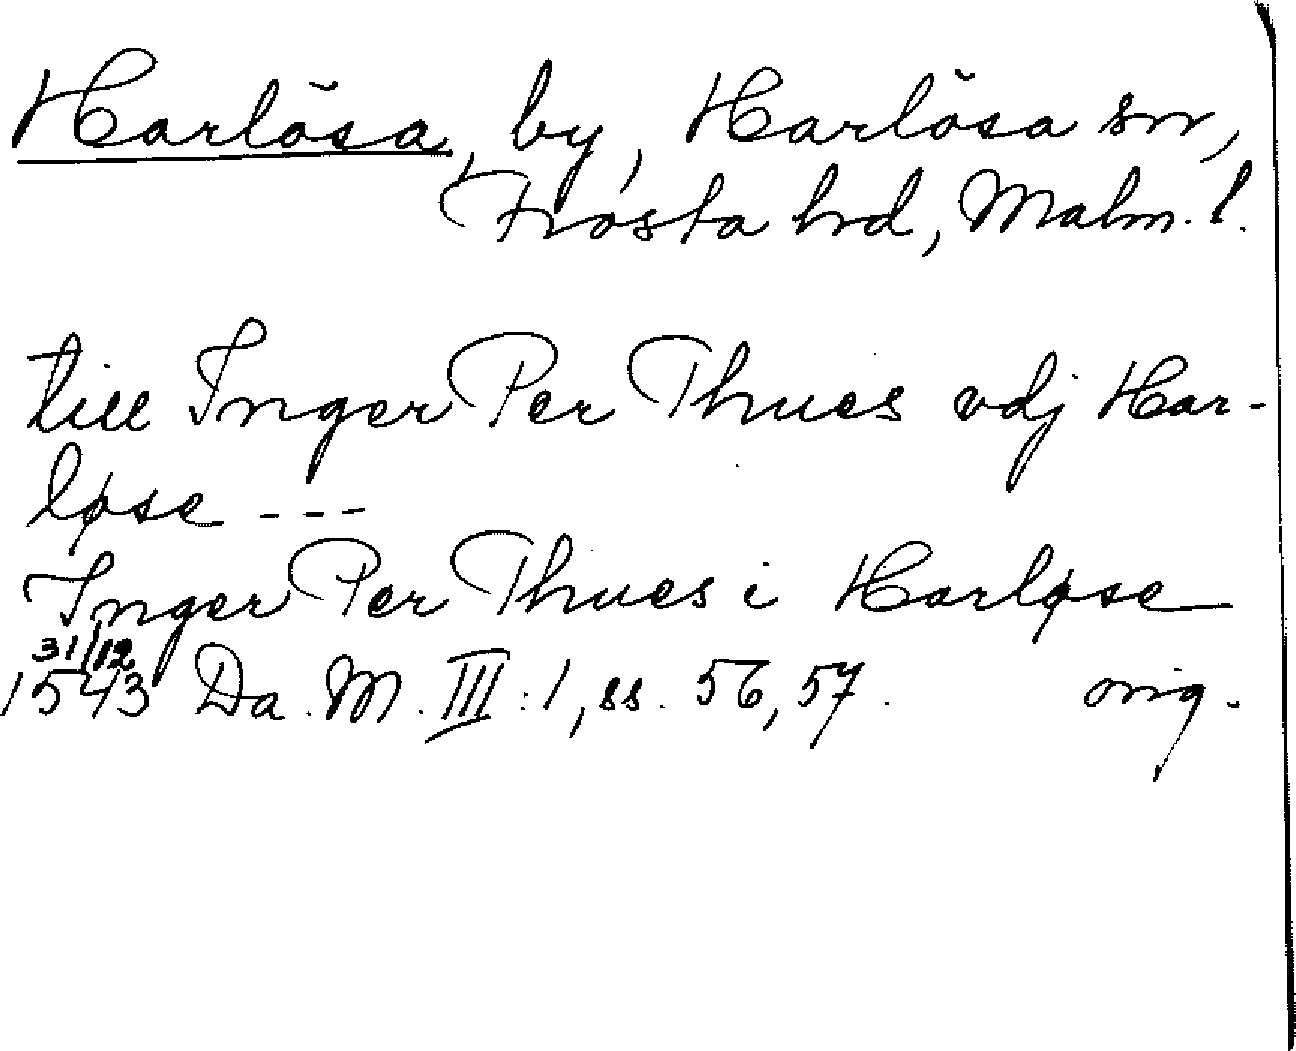 Harlösa, by, Harlösa sn,
Frosta hrd, Malm. l.
till Inger Per Thues vdj Har-
løse ---
Inger Per Thues i Harløse
31/12
1543 Da. M. III:1, ss. 56, 57. orig.